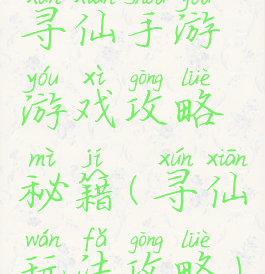 xún xiān shǒu yóu
寻仙手游
yóu xì gōng lüè
游戏攻略
mì jí xún xiān
秘籍(寻仙
wán fǎ gōng lüè
玩法攻略)